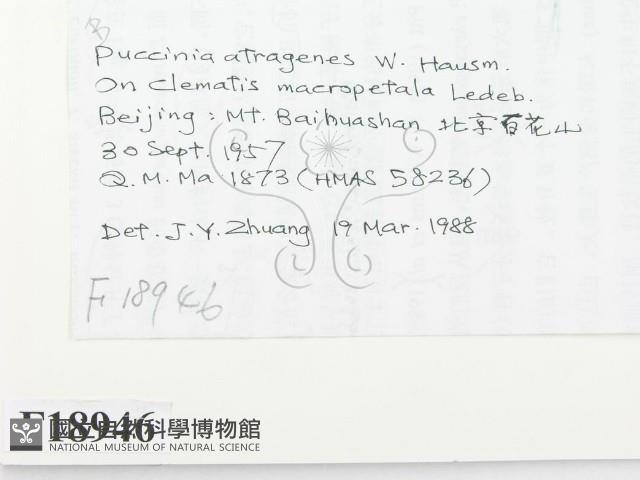 Puccinia atragenes W. Hausm.
On Clematis macropetala Ledeb.
Beijing : Mt. Baihuashan 北京百花山
30 Sept. 1957
Q. M. Ma 1873 (HMAS 58236)
Det. J. Y. Zhuang 19 Mar. 1988
F18946
F18946
國立自然科學博物館
NATIONAL MUSEUM OF NATURAL SCIENCE